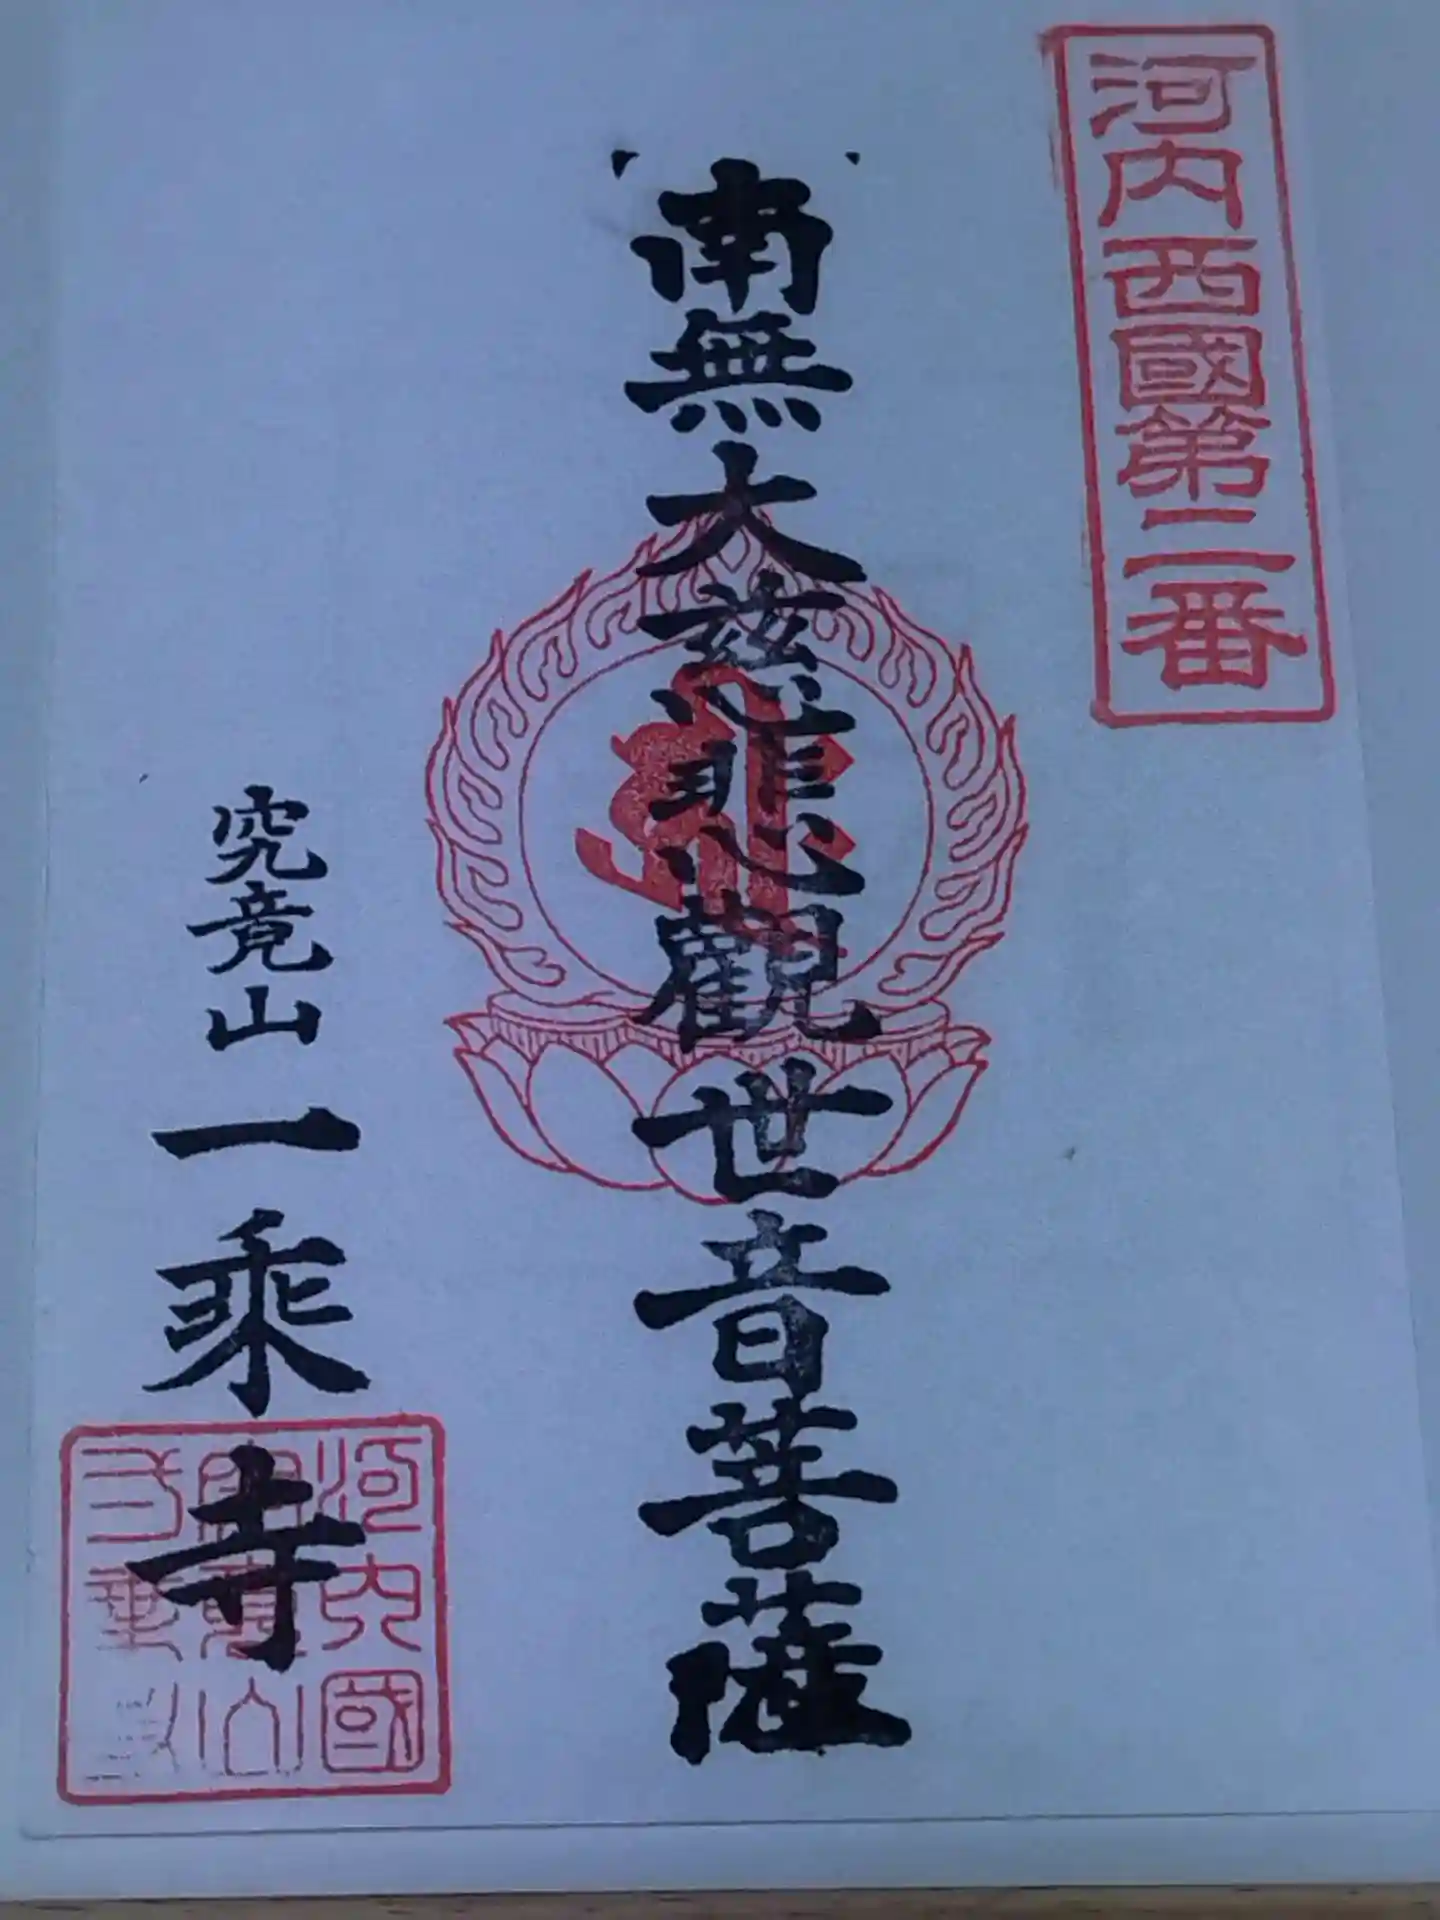 河内西國第二番
南無大慈悲觀世音菩薩
究竟山一乗寺
河内國